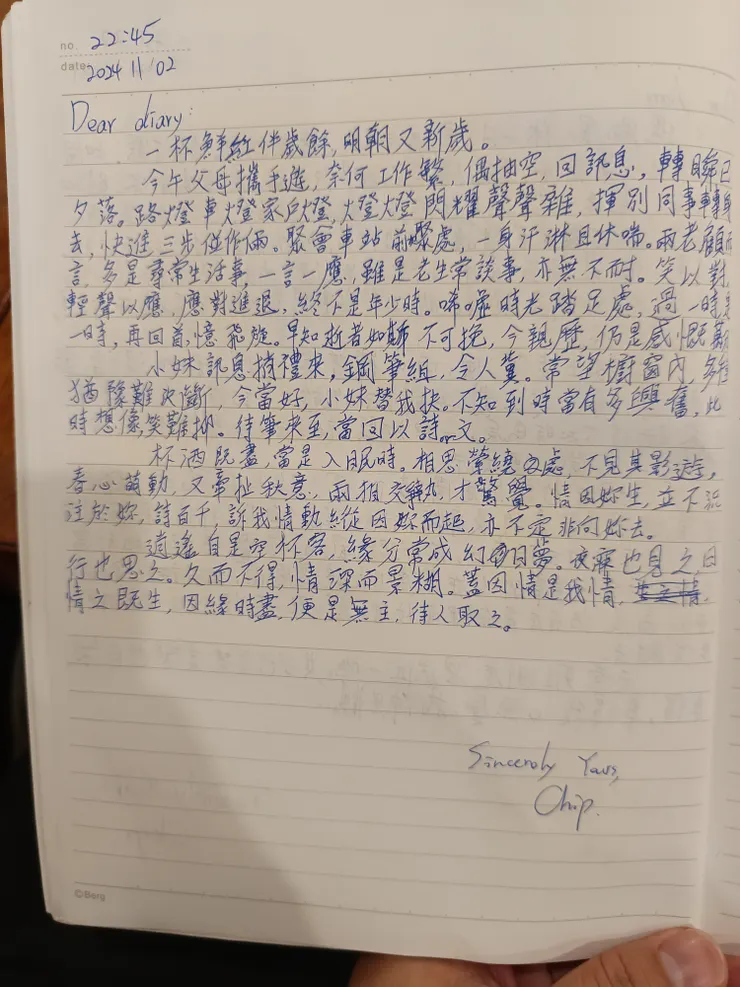 no. 22:45
date 2024 11/02
Dear diary:
一杯鮮紅伴歲餘,明朝又新歲。
今午父母攜手遊,奈何工作繁,偶抽空,回訊息,轉睇已
夕落。路燈車燈家戶燈,燈燈燈閃耀聲聲雜,揮別同事轉身
去,快進三步從作倆。聚會車站前驟處,一身汗淋且休喘。兩老顧而
言,多是尋常生活事,一言一應,雖是老生常談事,亦無不耐。笑以對,
輕聲以應,應對進退,終不是年少時。唏噓時光踏足處,過一時
一時,再回首,憶飛旋。早知逝者如斯不可挽,今親歷,仍是感慨
小妹訊息捎禮來,鋼筆組,令人冀。常望櫥窗內,
猶豫難決斷,今當好,小妹替我抉。不知到時當有多興奮,此
時想像,笑難抑。待筆來至,當回以詩or文。
杯酒既盡,當是入眠時。相思縈繞處,不見其影遊,
春心萌動,又牽扯秋意,兩相交,才驚覺。情因妳生,並不
注於妳,詩百千,訴我情動縱因妳而起,亦不定非向妳去。
逍遙自是空杯客,緣分常成幻白日夢。夜寐也見之,日
行也思之。久而不得,情深而景糊。蓋因情是我情,
情之既生,因緣時盡,便是無主,待人取之。
Sincerely Yours,
Chip.
©Berg